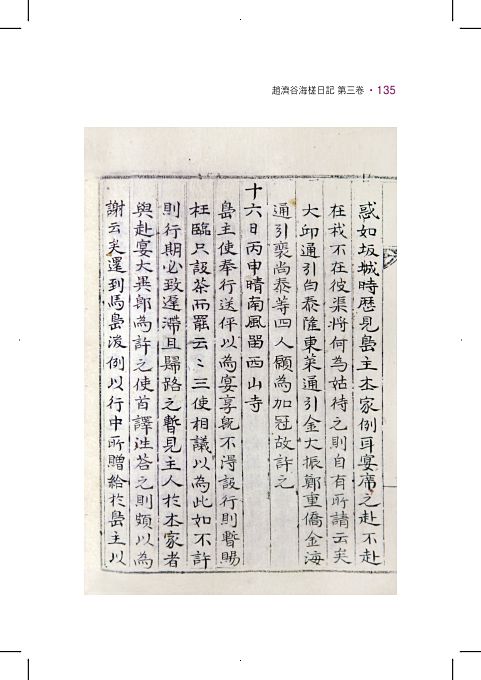 趙濟谷海槎日記 第三卷 • 135
惑如坂城時歷見島主本家例耳宴席之赴不赴
在我不在彼渠將何為姑待之則自有所請云矣
大邱通引白泰隆東萊通引金大振鄭重僑金海
通引裵尚泰等四人願為加冠故許之
十六日丙申晴南風留西山寺
島主使奉行送伻以為宴享旣不得設行則暫賜
枉臨只設茶而罷云云三使相議以為此如不許
則行期必致遲滯且歸路之暫見主人於本家者
與赴宴大異鄭為許之使首譯迬答之則頗以為
謝云矣還到馬島後例以行中所贈給於島主以